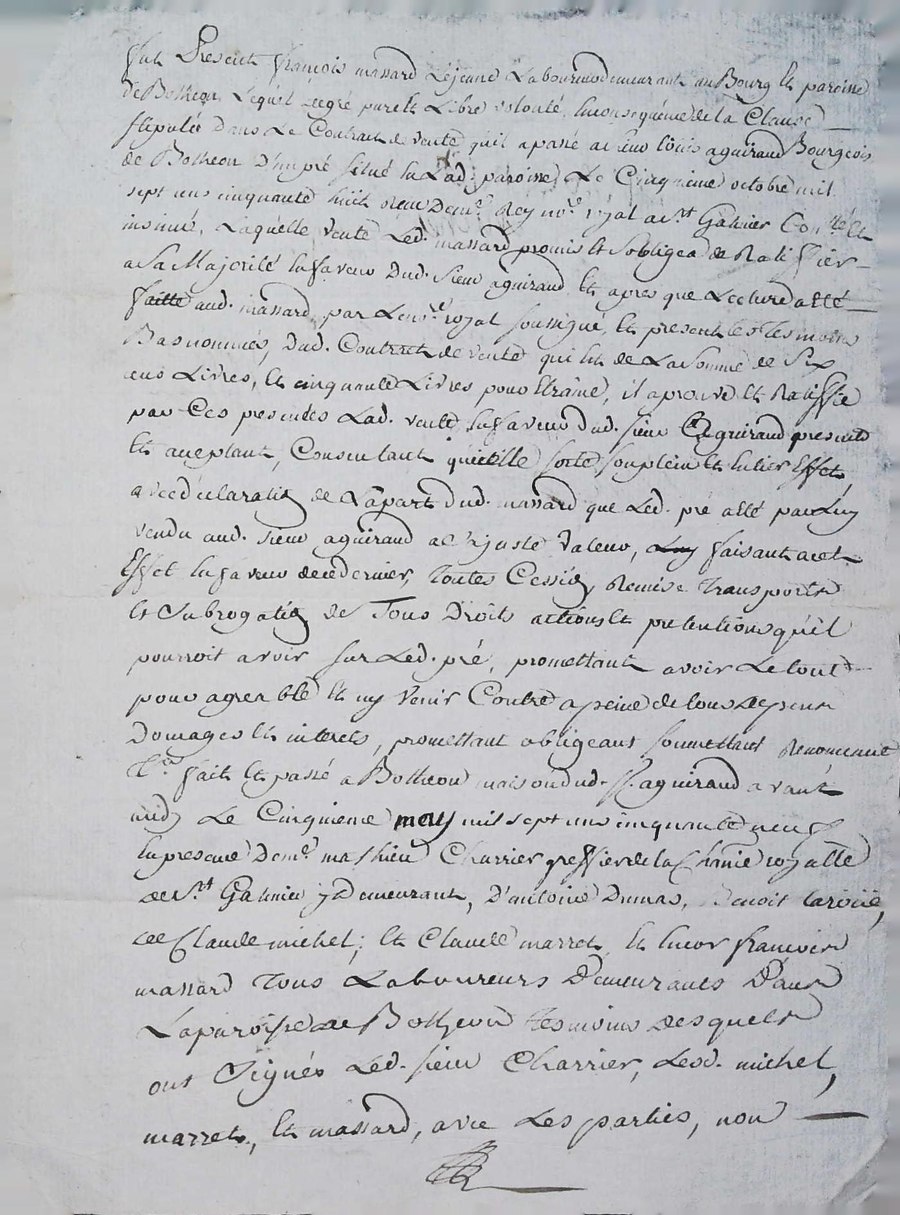 fut Present françois massard Lejeune Laboureur demeurant au Bourg Et paroisse
de Botheon, Lequel degré pure Et Libre volonté, En consequence de la Clause
stipulée Dans Le Contrat de vente qu'il a passé a sieur Louis aguiraud Bourgeois
de Botheon D'un pré situé En Lad. paroisse, Le Cinquieme octobre mil
sept cens cinquante huit recu Deme. Rey nore. royal a St Galmier Conllé Et
insinué, Laquelle vente Led. massard promis Et s'obligea de Ratiffier
a Sa Majorité En faveur Dud. Sieur aguiraud Et apres que Lecture a Eté
faitte aud. massard par Le nre. royal soussigné, Et present les Tesmoins
Basnommés, Dud. Contrat de vente qui Est de La somme de Six
cens Livres, Et cinquante Livres pour Etraine, il aprouve Et Ratiffie
par Ces presentes Lad. vente En faveur Dud. sieur Aguiraud present
Et acceptant, Consentant qu'elle sorte son plein Et Entier Effet
avec declaration de La part Dud. massard que Led. pré a Eté par Luy
vendu aud. sieur aguiraud a sa juste valeur, faisant acet
Effet En faveur de ce dernier, Toutes Cession, Remise Transports
Et Subrogation de Tous Droits actions Et pretentions qu'il
pourroit avoir sur Led. pré, promettant avoir Le tout
pour agreable Et ny venir Contre a peine de tous depens
Domages Et interets, promettant obligeant soumettant Renonceant
Fait Et passé a Botheon maison dud. Sr. aguiraud avant
midy Le Cinquieme may mil sept cens cinquante neuf
En presence De me. mathieu Charrier greffier de la Ch royalle
de St. Galmier y Demeurant, D'antoine Dumas, Benoit Laroüe,
de Claude michel; Et Claude marret, Et Encor françois
massard Tous Laboureurs Demeurants Dans
La paroisse de Botheon Tesmoins desquels
ont Signés Led. sieur Charrier, Lesd. michel,
marret, Et massard, avec Les parties, non